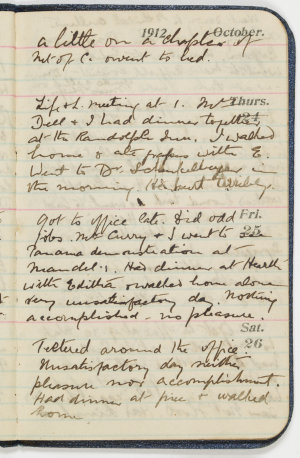 1912 October.
a little on a chapter of
Met of C. & went to bed.
Thurs.
24
Lif. & L. meeting at 1. Mr
Dell & I had dinner together
at the Randolph Inn. I walked
home & ate grapes with E.
Went to Dr. in
the morning.
Fri.
25
Got to office late. Did odd
jobs. Mr Curry & I went to see
Panama demonstration at
Mandel's. Had dinner at Hearth
with Editha & walked home alone
Very unsatisfactory day. Nothing
accomplished - no pleasure.
Sat.
26
Teetered around the office
Unsatisfactory day neither
pleasure nor accomplishment.
Had dinner at & walked
home